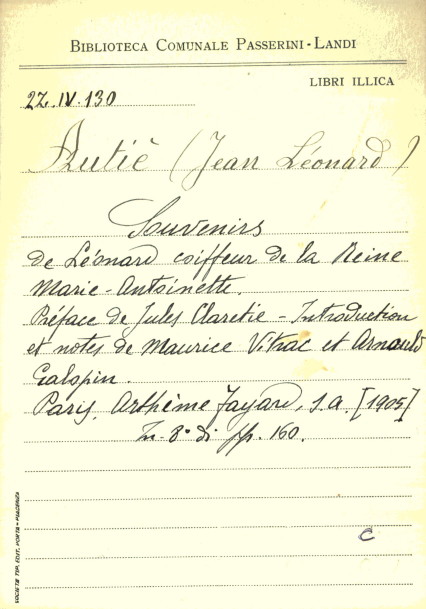 BIBLIOTECA COMUNALE PASSERINI-LANDI
LIBRI ILLICA
2Z.IV.130
Autiè (Jean Léonard)
Souvenirs
de Léonard coiffeur de la Reine
Marie-Antoinette.
Préface de Jules Claretie - Introduction
et notes de Maurice Vitrac et Arnauld
Galopin.
Paris, Arthème Fayard, s.a. [1905]
In-8° di pp. 160.
C
SOCIETÀ TIP. EDIT. PORTA - PIACENZA